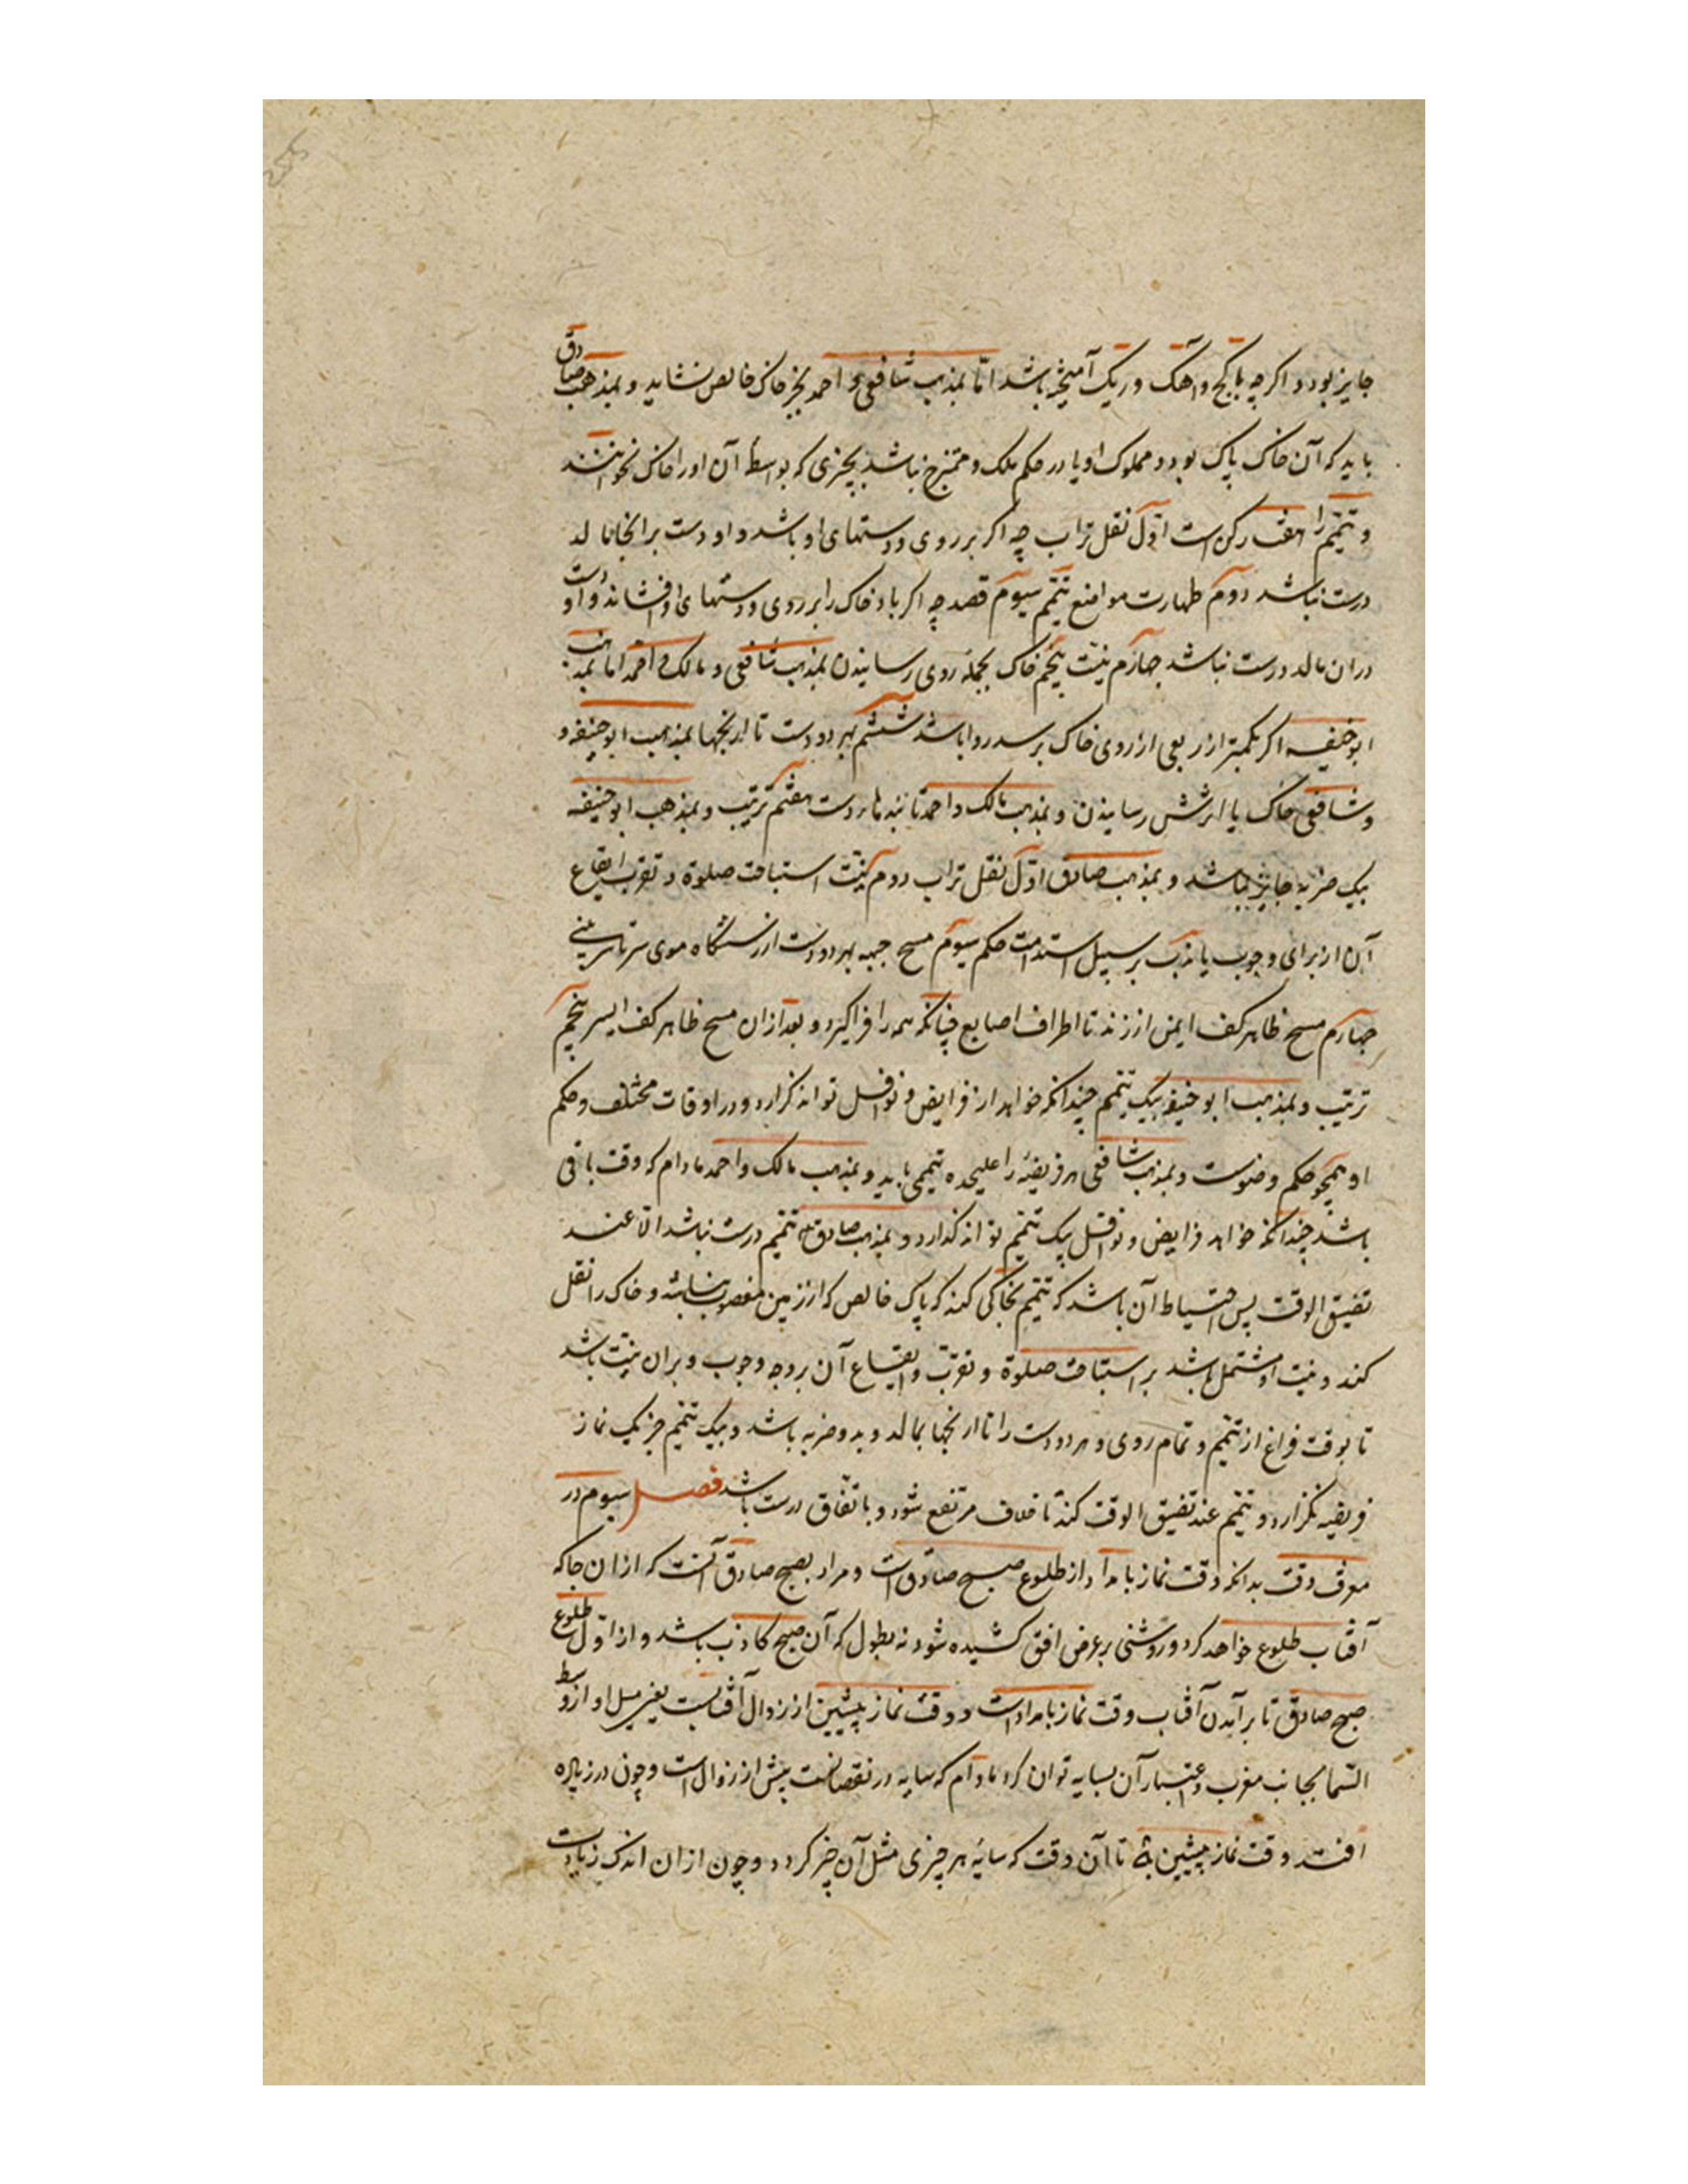 جایز بود و اکرچه با کج و آهک و ریک آمیخته باشد اما بمذهب شافعی و احمد بجز خاک خالص نشاید و بمذهب صادق
باید که آن خاک پاک بود و مملوک او یا در حکم ملک و ممتزج نباشد بچیزی که بواسطهٔ آن او را خاک نخوانند
و تیمم را هفت رکن است اول نقل تراب چه اکر بر روی و دستهای او باشد و او دست بر انجا مالد
درست نباشد دوم طهارت مواضع تیمم سیوم قصد چه اکر باد خاک را بر روی و دستهای او افشاند و او دست
دران مالد درست نباشد چهارم نیت پنجم خاک بجملهٔ روی رسانیدن بمذهب شافعی و مالک و احمد اما بمذهب
ابو حنیفه اکر بکمتر از ربعی از روی خاک برسد روا باشد ششم بهر دو دست تا ارنجها بمذهب ابو حنیفه و
و شافعی خاک یا اثرش رسانیدن و بمذهب مالک و احمد تا بندهاء دست هفتم ترتیب و بمذهب ابو حنیفه
بیک ضربه جایز نباشد و بمذهب صادق اول نقل تراب دوم نیت استباحت صلوة و تقرب ایقاع
آن از برای وجوب یا ندب بر سبیل استدامت حکم سیوم مسح جبهه بهر دو دست از رستنکاه موی سر تا سر بینی
چهارم مسح ظاهر کف ایمن از زند تا اطراف اصابع چنانکه همه را فراکیرد و بعد ازان مسح ظاهر کف ایسر پنجم
ترتیب و بمذهب ابو حنیفه بیک تیمم چندانکه خواهد از فرایض و نوافل تواند کزارد و در اوقات مختلف و حکم
او همچو حکم وضوست و بمذهب شافعی هر فریضهٔ را علیحده تیممی باید و بمذهب مالک و احمد مادام که وقت باقی
باشد چندانکه خواهد فرایض و نوافل بیک تیمم تواند کذارد و بمذهب صادق تیمم درست نباشد الا عند
تضیق الوقت پس احتیاط آن باشد که تیمم بخاکی کند که پاک خالص که از زمین مغصوب نباشد و خاک را نقل
کند و نیت او مشتمل باشد بر استباحت صلوة و تقرب و ایقاع آن بر وجه وجوب و بران نیت باشد
تا بوقت فراغ از تیمم و تمام روی و هر دو دست را تا ارنجها بمالد و بدو ضربه باشد و بیک تیمم جز یک نماز
فریضه نکزارد و تیمم عند تضیق الوقت کند تا خلاف مرتفع شود و باتفاق درست باشد فصل سیوم در
معرفت وقت بدانکه وقت نماز بامداد از طلوع صبح صادق است و مراد بصبح صادق آنست که ازان جا که
آفتاب طلوع خواهد کرد و روشنی بر عرض افق کشیده شود نه بطول که آن صبح کاذب باشد و از اول طلوع
صبح صادق تا برآمدن آفتاب وقت نماز بامدادست و وقت نماز پیشین از زوال آفتابست یعنی میل او از وسط
السما بجانب مغرب و اعتبار آن بسایه توان کرد مادام که سایه در نقصانست پیش از زوال است و چون در زیاده
افتد وقت نماز پیشین تا آن وقت که سایهٔ هر چیزی مثل آن چیز کردد و چون ازان اندک زیادت